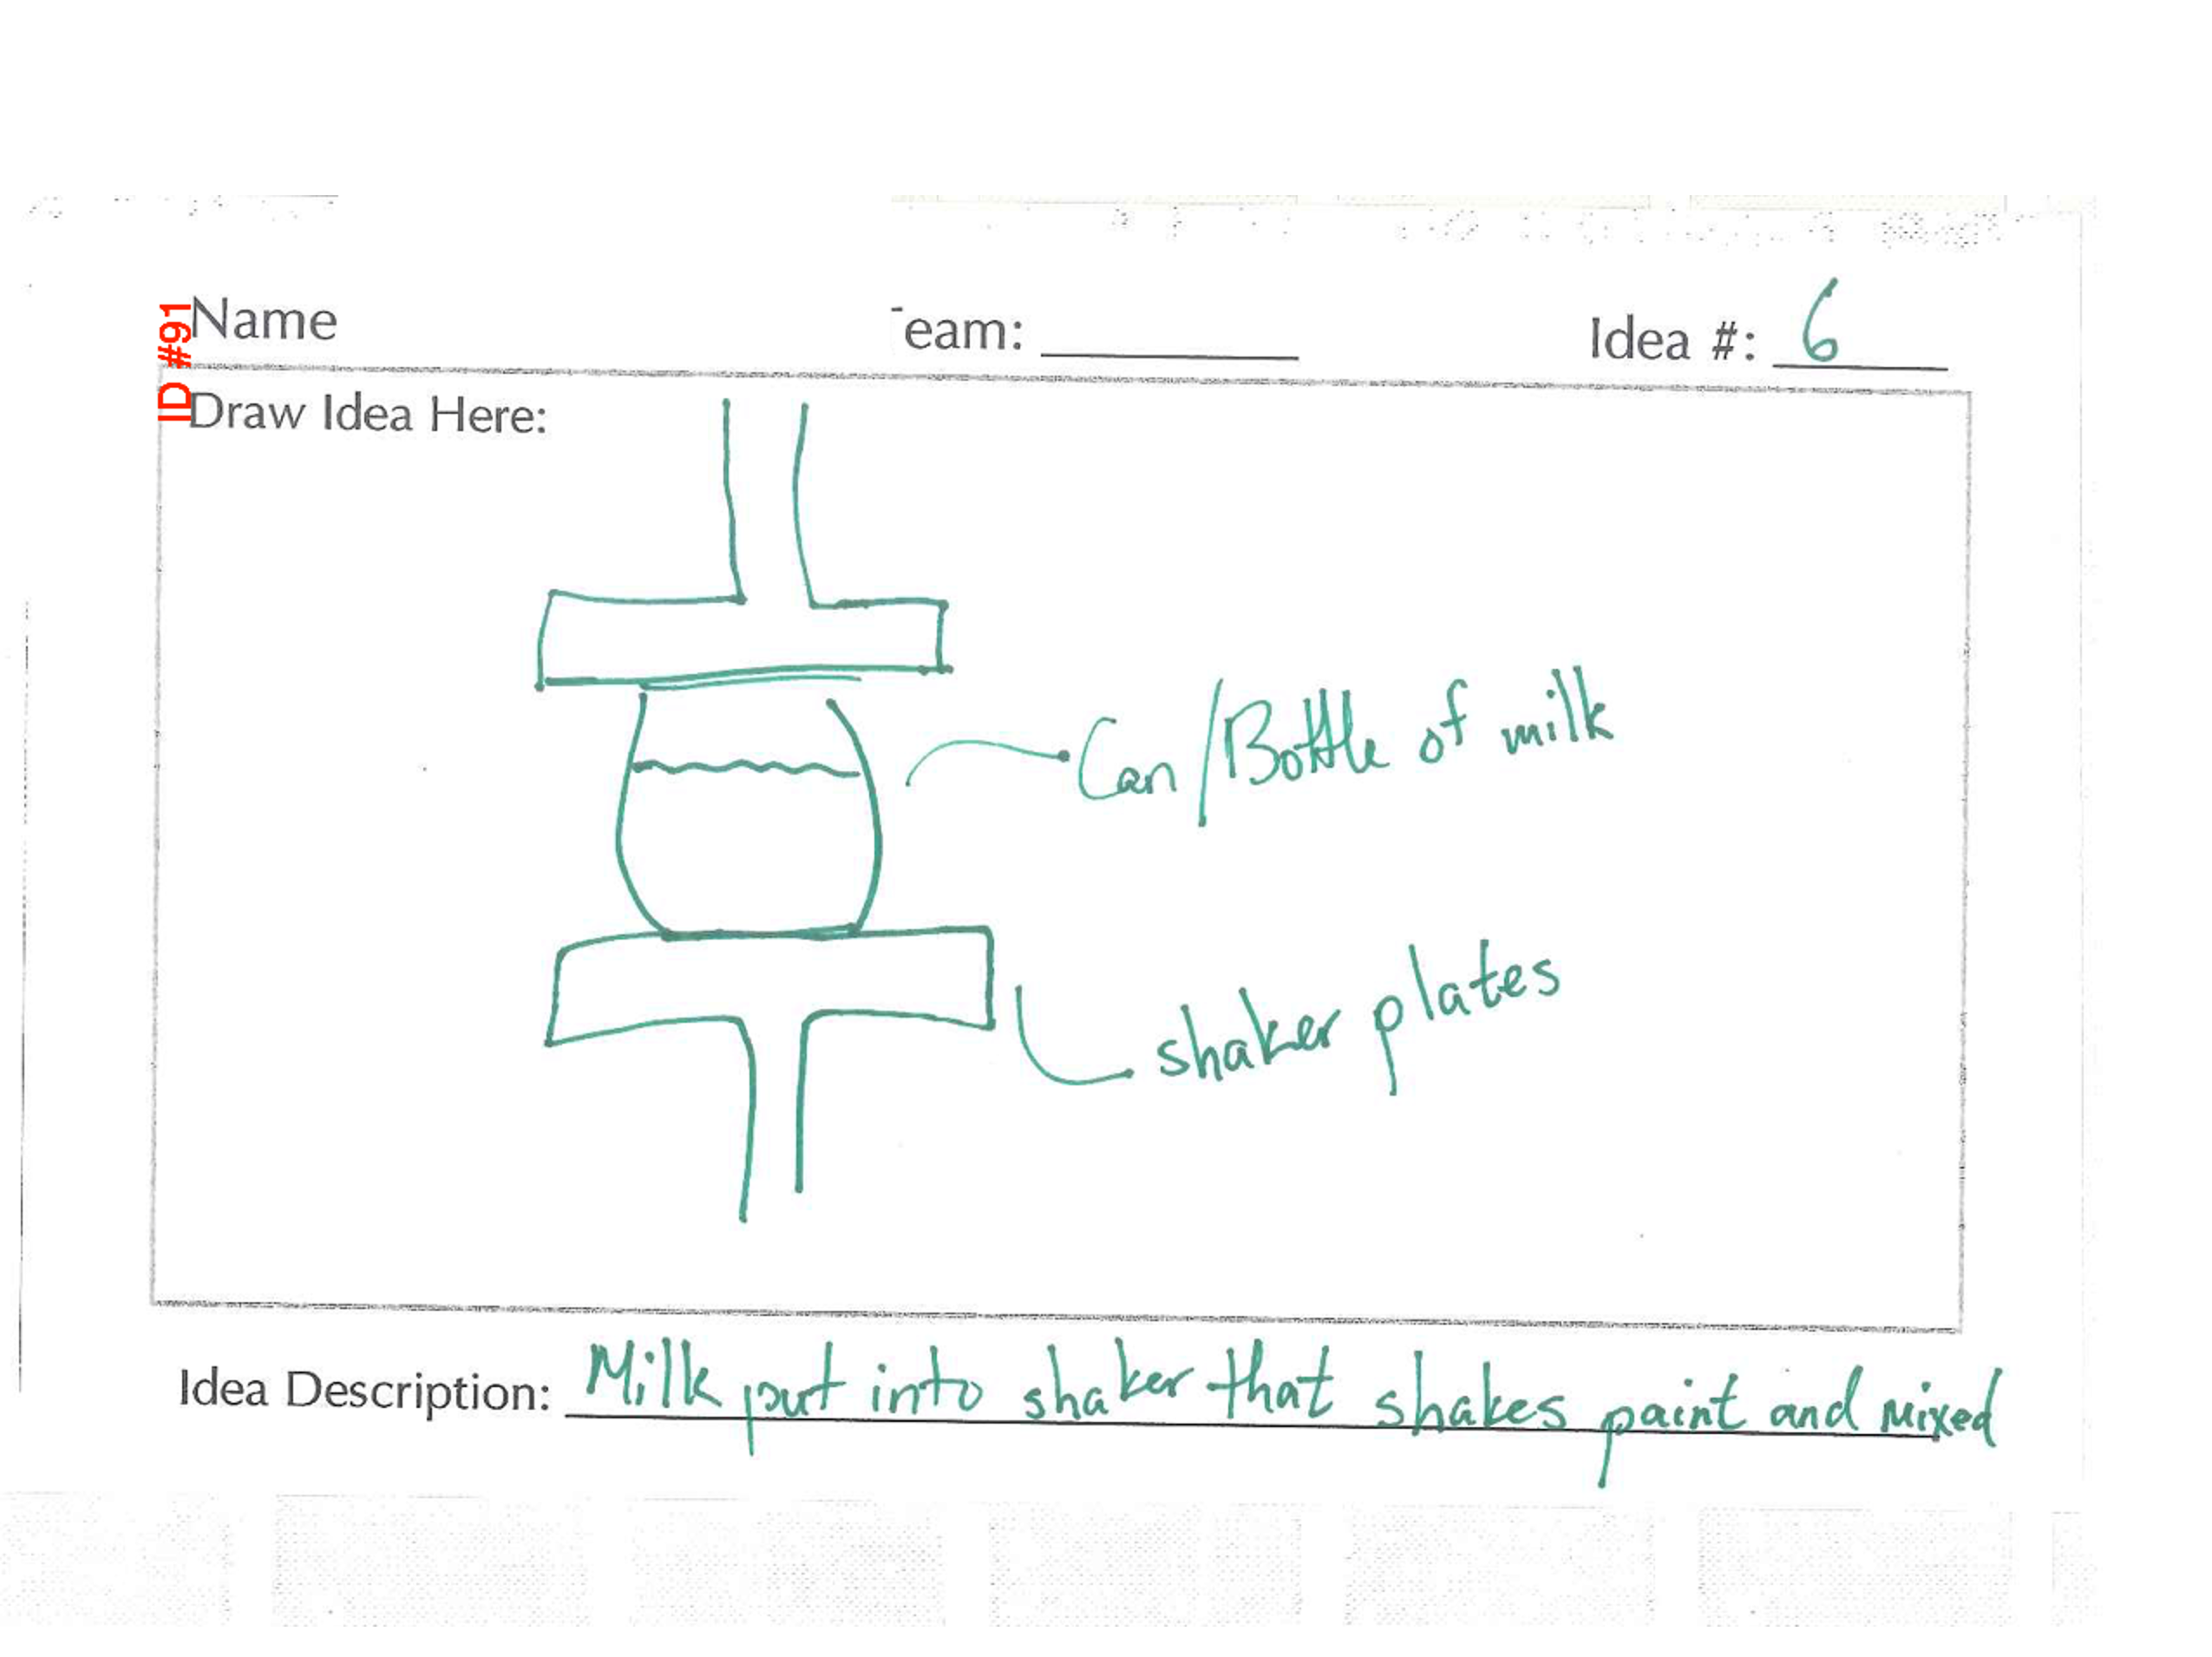 ID #91
Name
eam:
Idea #: 6
Draw Idea Here:
Can/Bottle of milk
shaker plates
Idea Description: Milk put into shaker that shakes paint and mixed